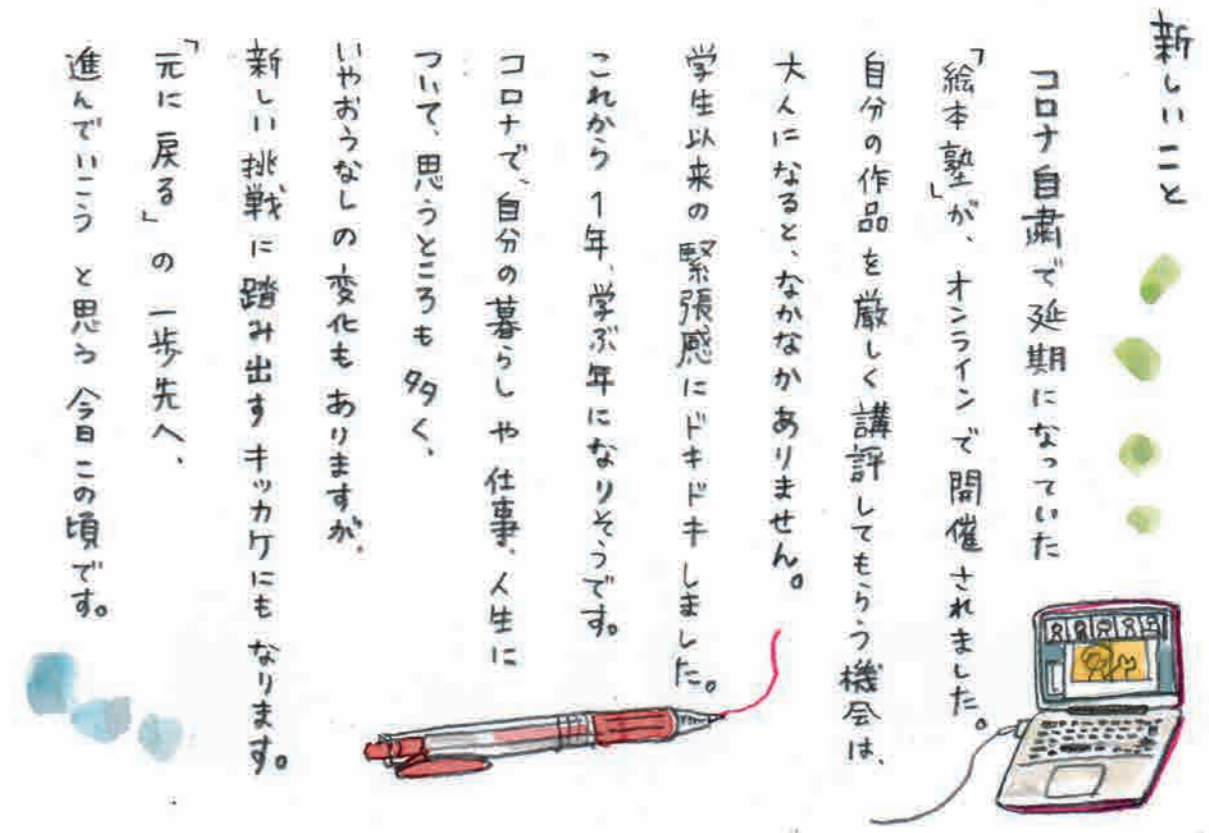 新しいこと
コロナ自粛で延期になっていた
「絵本塾」が、オンラインで開催されました。
自分の作品を厳しく講評してもらう機会は、
大人になると、なかなかありません。
学生以来の緊張感にドキドキしました。
これから1年、学ぶ年になりそうです。
コロナで、自分の暮らしや仕事、人生に
ついて、思うところも多く、
いやおうなしの変化もありますが、
新しい挑戦に踏み出すキッカケにもなります。
「元に戻る」の一歩先へ、
進んでいこうと思う今日この頃です。